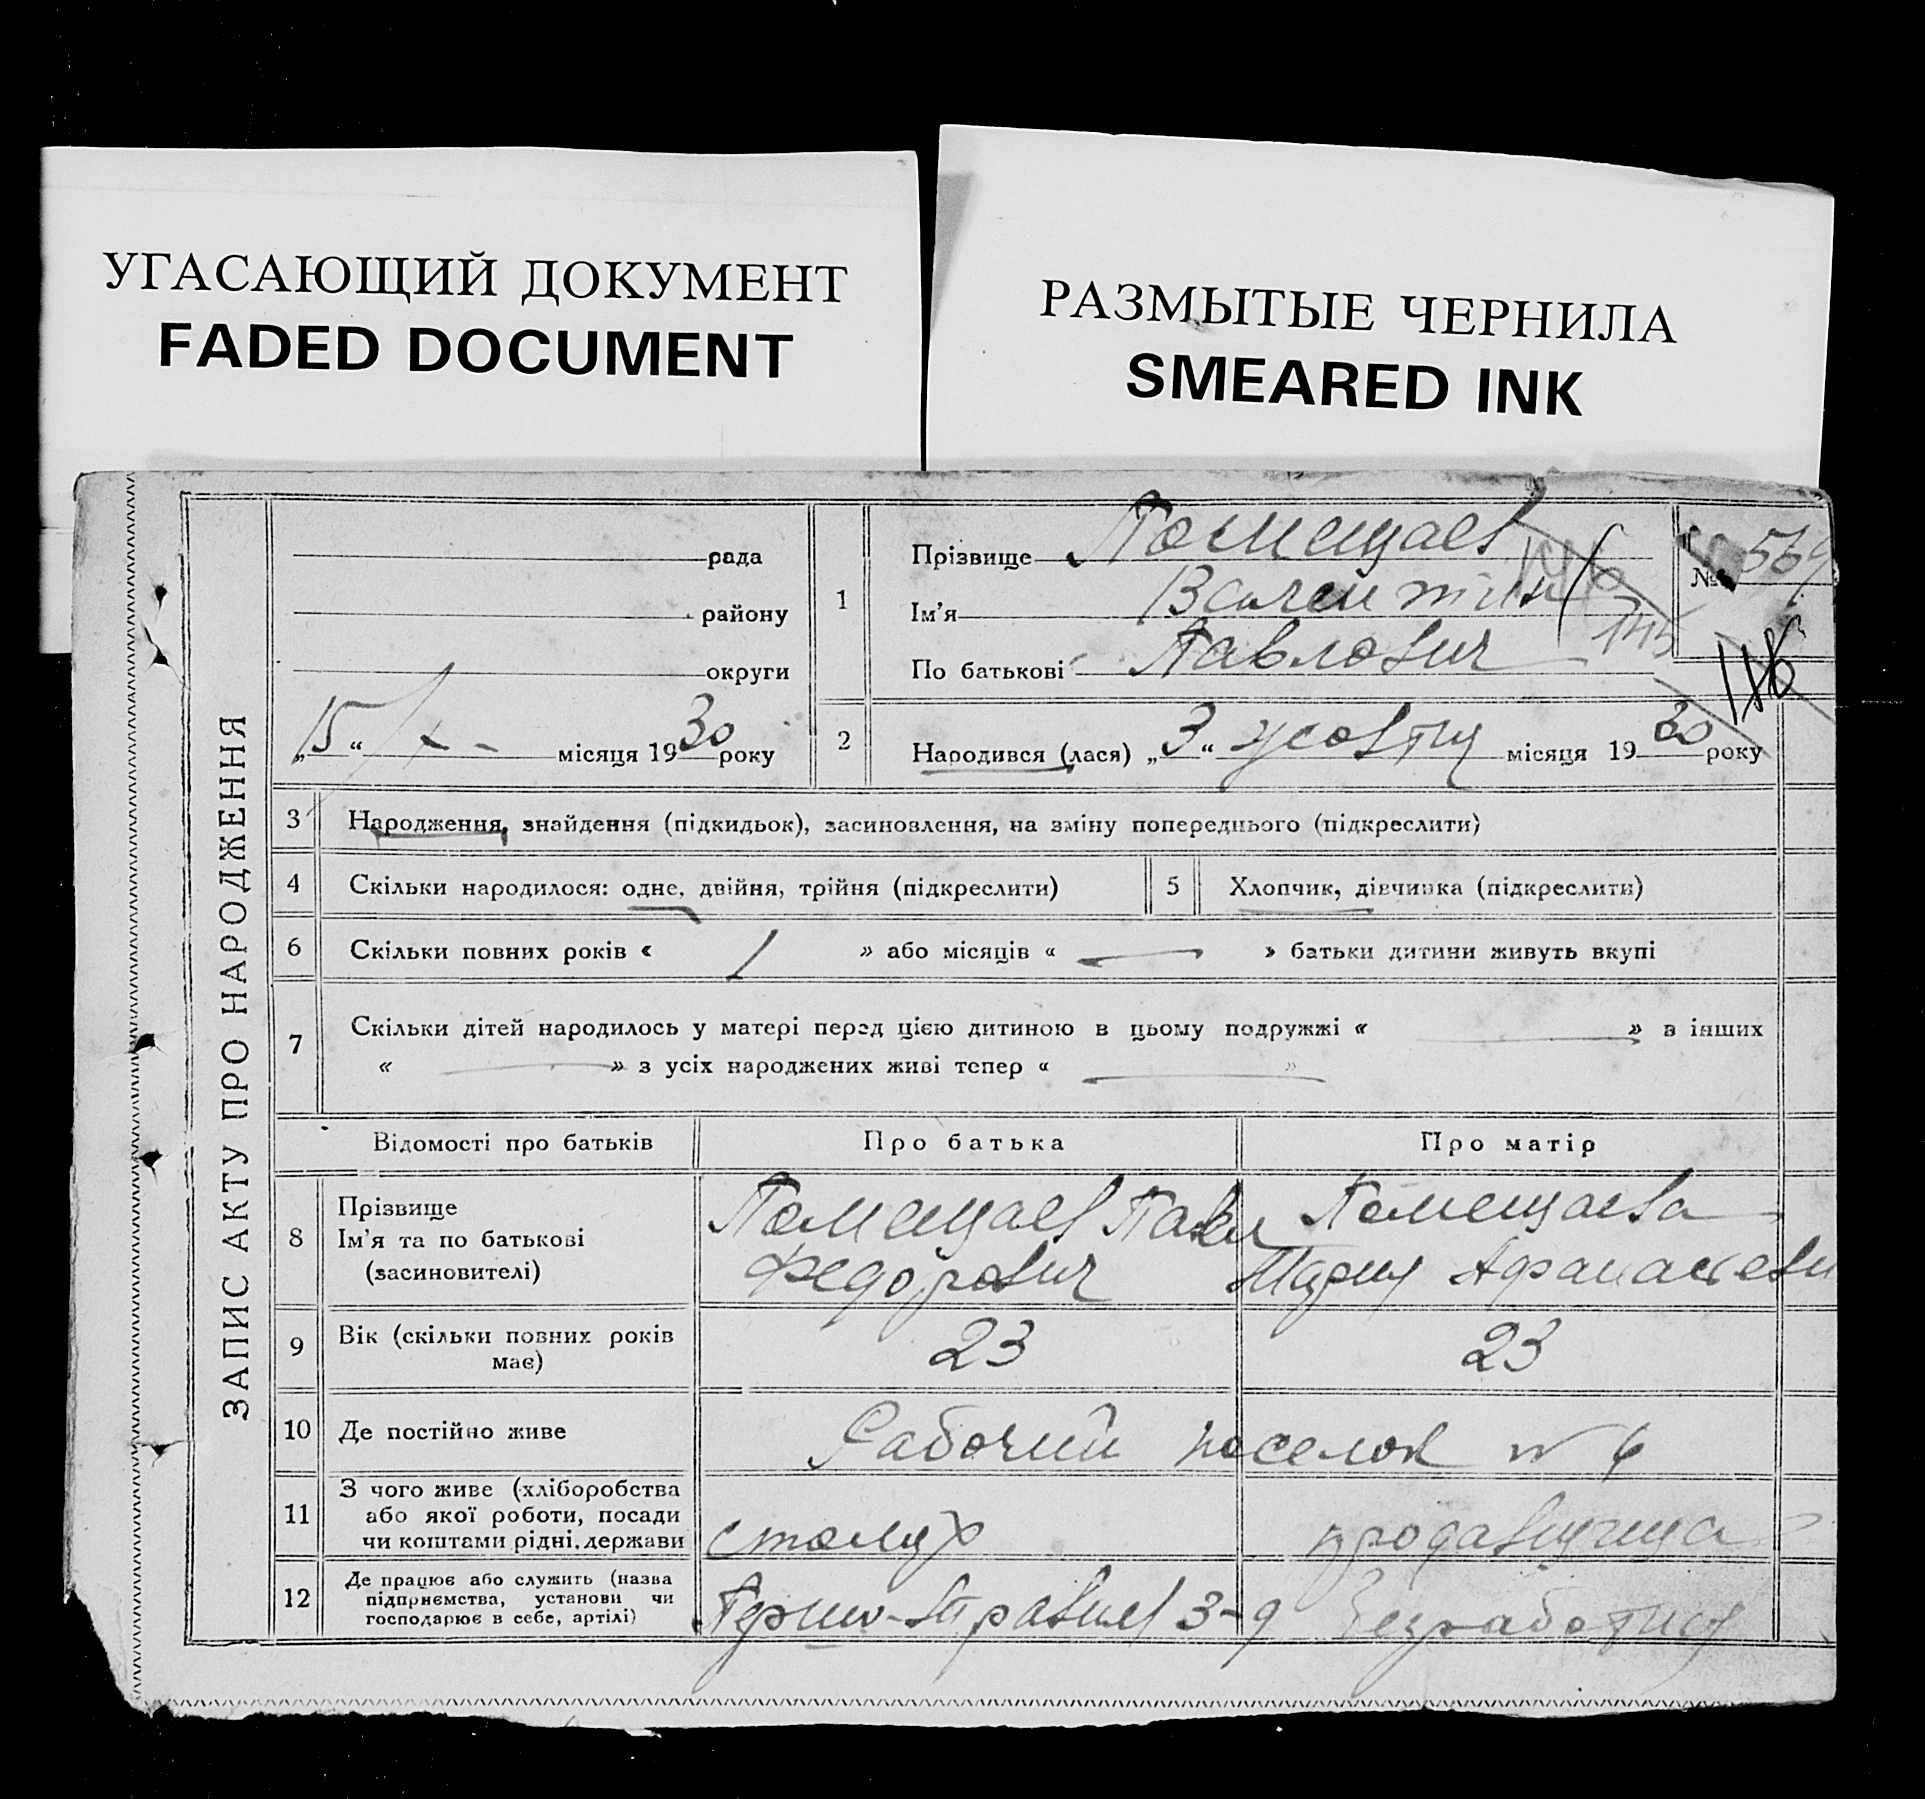 УГАСАЮЩИЙ ДОКУМЕНТ
FADED DOCUMENT
РАЗМЫТЫЕ ЧЕРНИЛА
SMEARED INK
ЗАПИС АКТУ ПРО НАРОДЖЕННЯ
рада
району
округи
„15“ X - місяця 1930 року
1
Прізвище Помещаев
Ім'я Валентин
По батькові Павлович
№ 569
146
145
146
2 Народився (лася) „3“ жовтня місяця 1930 року
3 Народження, знайдення (підкидьок), засиновлення, на зміну попереднього (підкреслити)
4 Скільки народилося: одне, двійня, трійня (підкреслити) 5 Хлопчик, дівчинка (підкреслити)
6 Скільки повних років « 1 » або місяців « — » батьки дитини живуть вкупі
7 Скільки дітей народилось у матері перед цією дитиною в цьому подружжі « — » в інших
« — » з усіх народжених живі тепер « — »
Відомості про батьків Про батька Про матір
8 Прізвище
Ім'я та по батькові
(засиновителі)
Помещаев Павел
Федорович
Помещаева
Мария Афанасьевн
9 Вік (скільки повних років
має)
23 23
10 Де постійно живе Рабочий поселок № 6
11 З чого живе (хліборобства
або якої роботи, посади
чи коштами рідні, держави
столяр продавщица
12 Де працює або служить (назва
підприємства, установи чи
господарює в себе, артілі)
З-д